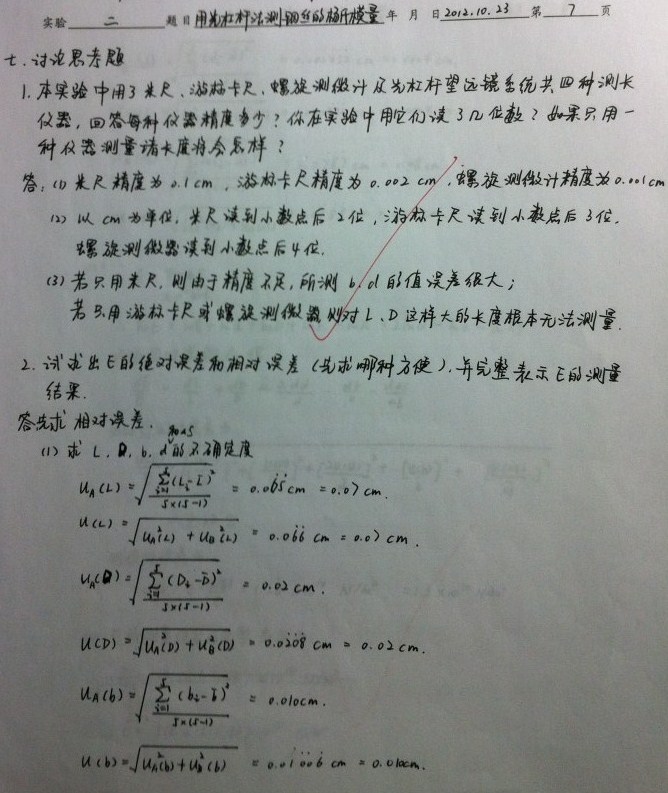 实验 二 题目 用光杠杆法测钢丝的杨氏模量 年 月 日 2012.10.23 第 7 页
七.讨论思考题
1.本实验中用了米尺、游标卡尺、螺旋测微计及光杠杆望远镜系统共四种测长
仪器,回答每种仪器精度多少?你在实验中用它们读了几位数?如果只用一
种仪器测量诸长度将会怎样?
答:(1)米尺精度为0.1cm,游标卡尺精度为0.002cm,螺旋测微计精度为0.001cm
(2)以cm为单位,米尺读到小数点后2位,游标卡尺读到小数点后3位,
螺旋测微器读到小数点后4位.
(3)若只用米尺,则由于精度不足,所测b,d的值误差很大;
若只用游标卡尺或螺旋测微器则对L、D这样大的长度根本无法测量.
2.试求出E的绝对误差和相对误差(先求哪种方便),并完整表示E的测量
结果.
答:先求相对误差.
(1)求L、D、b、d的不确定度
U_A(L)=√(∑_{i=1}^{5}(L_i-L̄)²/5×(5-1)) =0.065cm=0.07cm.
U(L)=√(U_A²(L)+U_B²(L)) =0.066cm=0.07cm.
U_A(D)=√(∑_{i=1}^{5}(D_i-D̄)²/5×(5-1)) =0.02cm.
U(D)=√(U_A²(D)+U_B²(D)) =0.0208cm=0.02cm.
U_A(b)=√(∑_{i=1}^{5}(b_i-b̄)²/5×(5-1)) =0.010cm.
U(b)=√(U_A²(b)+U_B²(b)) =0.01006cm=0.010cm.